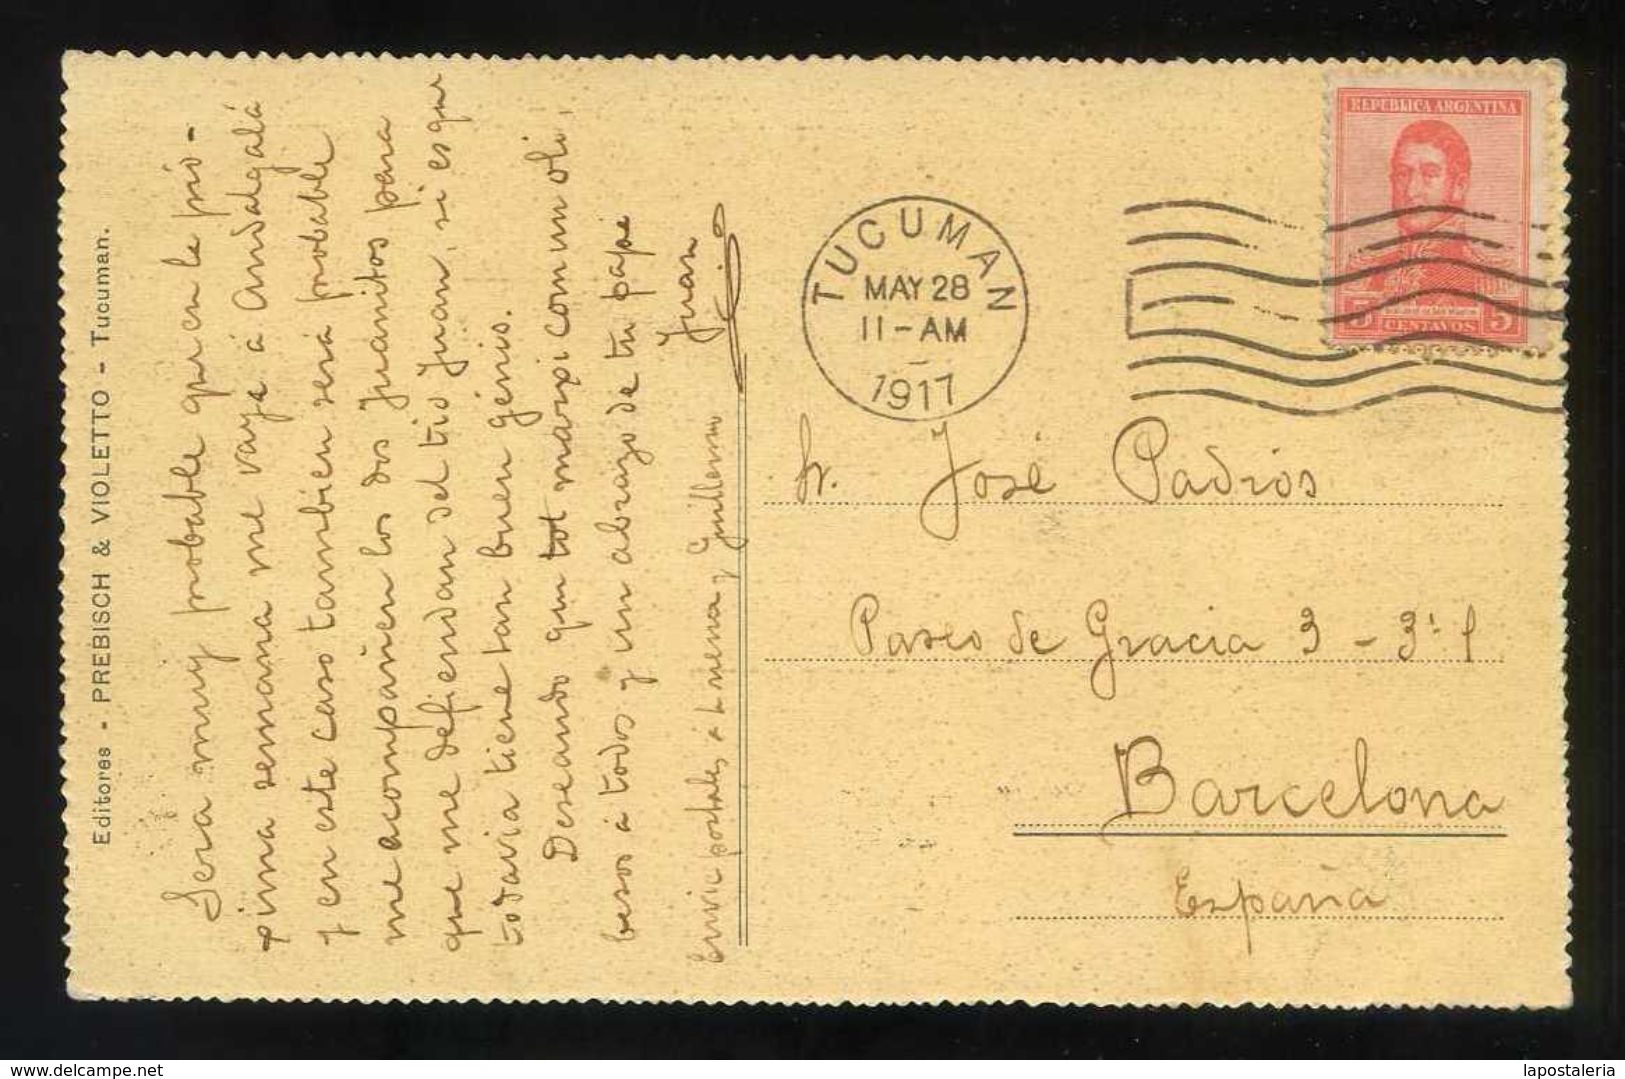 Editores - PREBISCH & VIOLETTO - Tucuman.
Sera muy probable que en la pró-
pima semana me vaya á Andalgalá
y en este caso tambien será probable
me acompañen los dos Juanitos para
que me defiendan del tio Juan, si es que
todavia tiene tan buen génio.
Deseando que tot marxi com un oli,
besos á todos y un abrazo de tu papá
Juan
Envié postales á y Guillermo
TUCUMAN
MAY 28
11-AM
1917
REPUBLICA ARGENTINA
5 CENTAVOS 5
Sr. José Padrós
Paseo de Gracia 3 - 3º 1
Barcelona
España
www.delcampe.net
lapostaleria